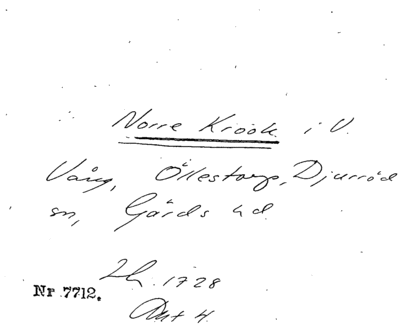 Norre Kröok i V.
Vång, Öllestorp, Djurröd
sn, Gärds hd.
Lh. 1728
Nr 7712.
Akt 4.